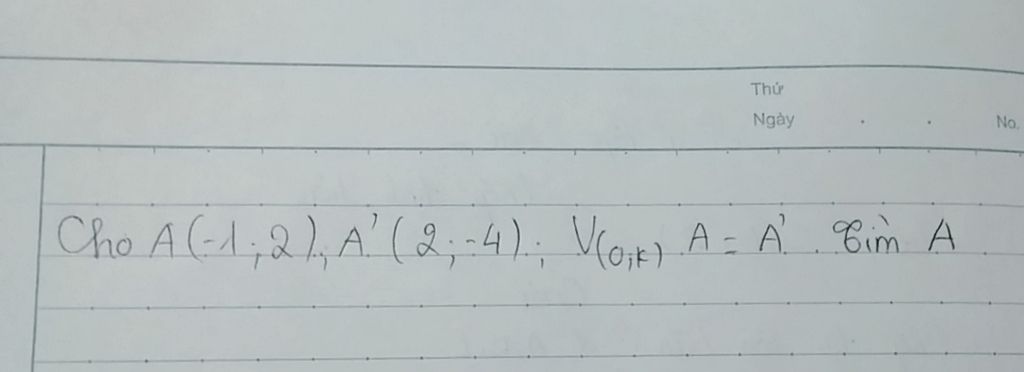 Thứ
Ngày . . No.
Cho A(-1;2); A'(2;-4); V(O;k) A = A'. Tìm A